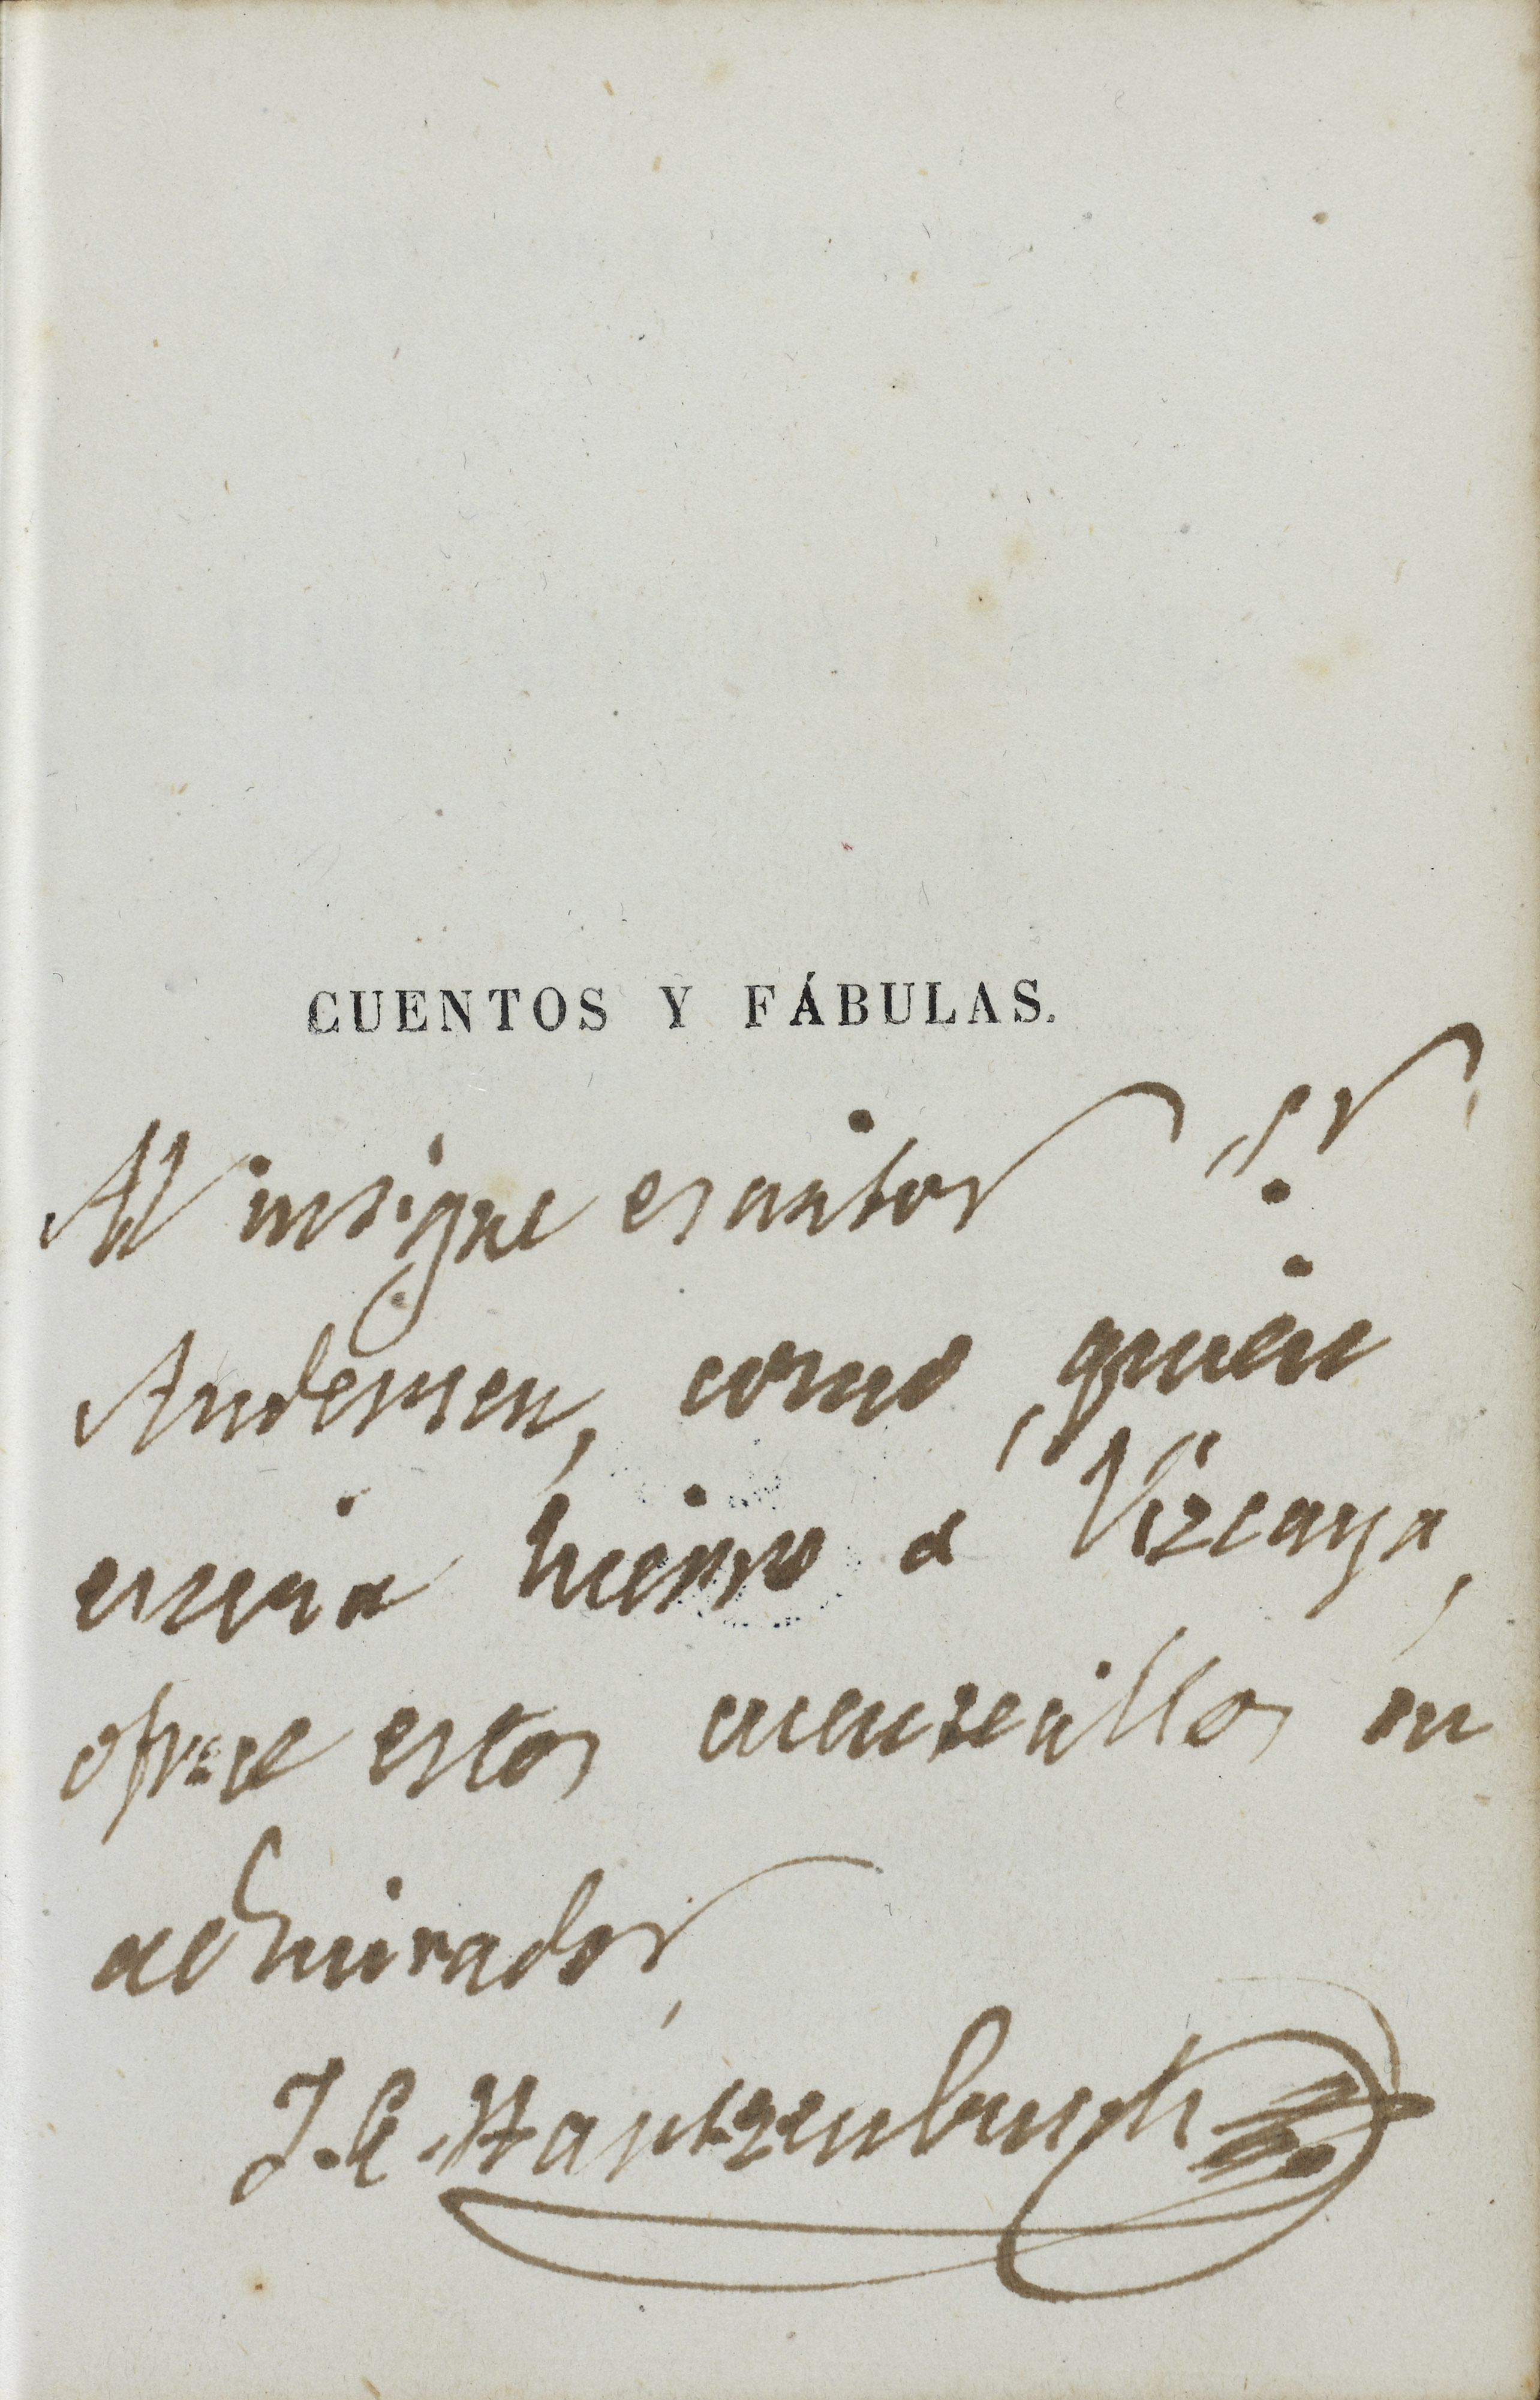 CUENTOS Y FÁBULAS.
Al insigne escritor Sr.
Andersen, como quien
envia hierro a Vizcaya,
ofrece estos cuentecillos su
admirador,
J. E. Hartzenbusch